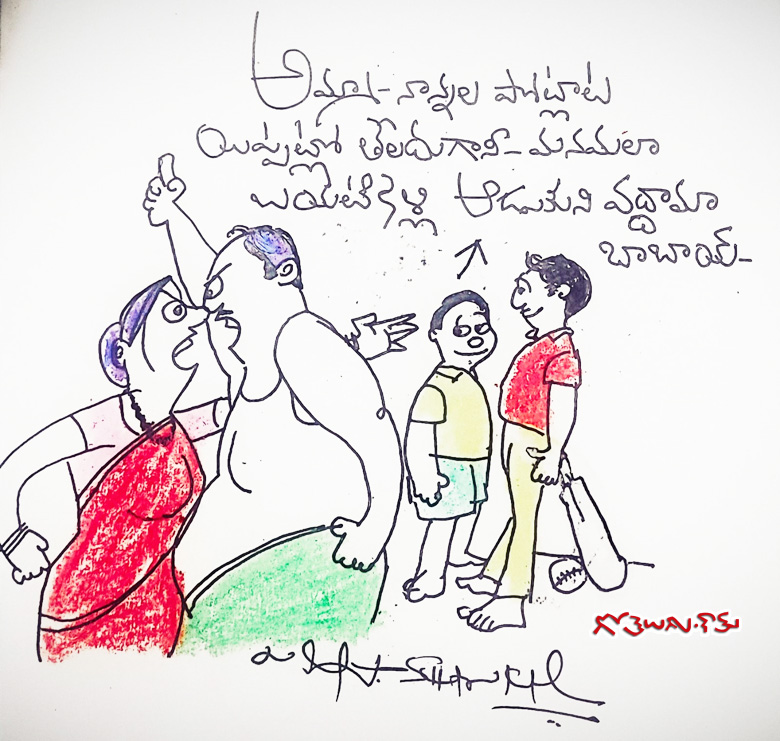 అమ్మా-నాన్నల పోట్లాట
యిప్పట్లో తేలదుగానీ- మనమలా
బయటికెళ్లి ఆడుకుని వద్దామా
బాబాయ్-
గోతెలుగు.కామ్